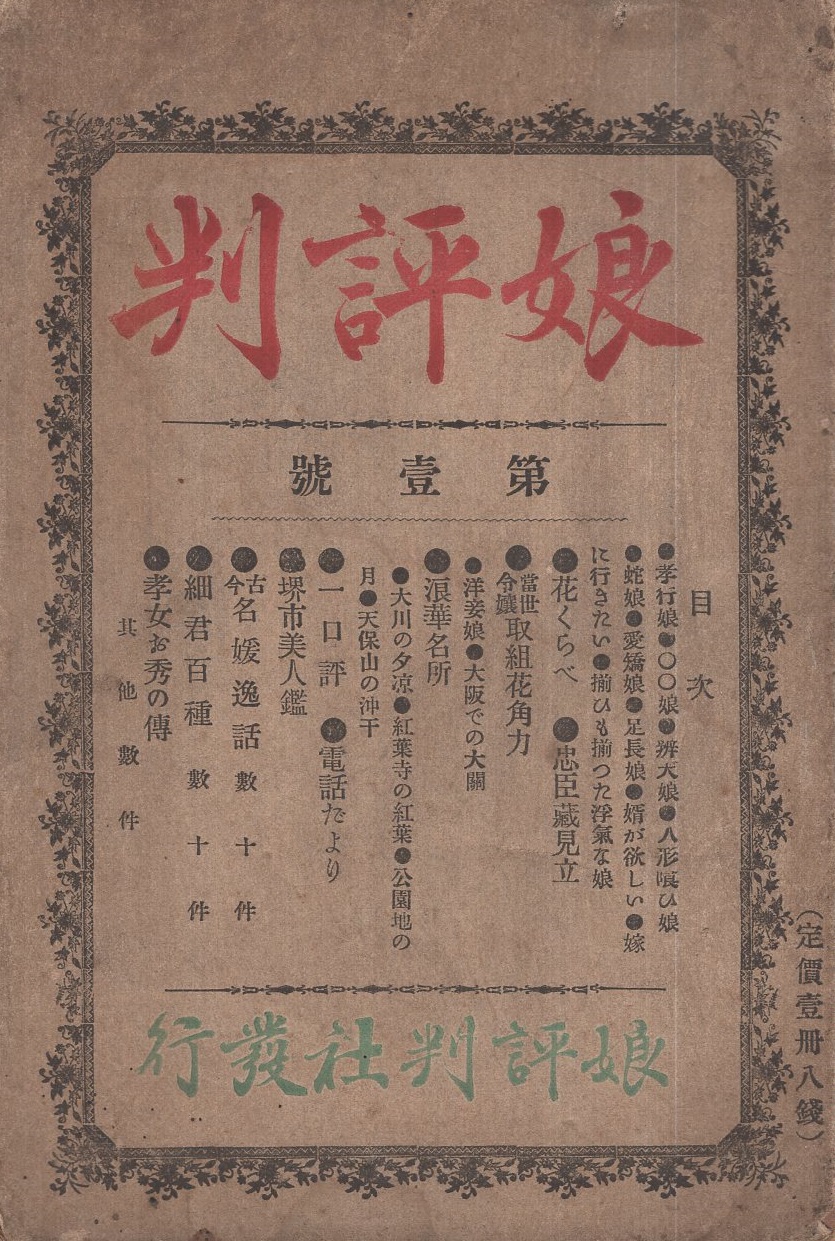 娘評判
第壹號
目次
●孝行娘●〇〇娘●辨天娘●人形喰ひ娘
●蛇娘●愛矯娘●足長娘●婿が欲しい●嫁
に行きたい●揃ひも揃つた浮氣な娘
●花くらべ ●忠臣藏見立
●當世令孃取組花角力
●洋妾娘●大阪での大關
●浪華名所
●大川の夕凉●紅葉寺の紅葉●公園地の
月●天保山の沖干
●一口評 ●電話だより
●堺市美人鑑
●古今名媛逸話數十件
●細君百種數十件
●孝女お秀の傳
其他數件
娘評判社發行
(定價壹冊八錢)